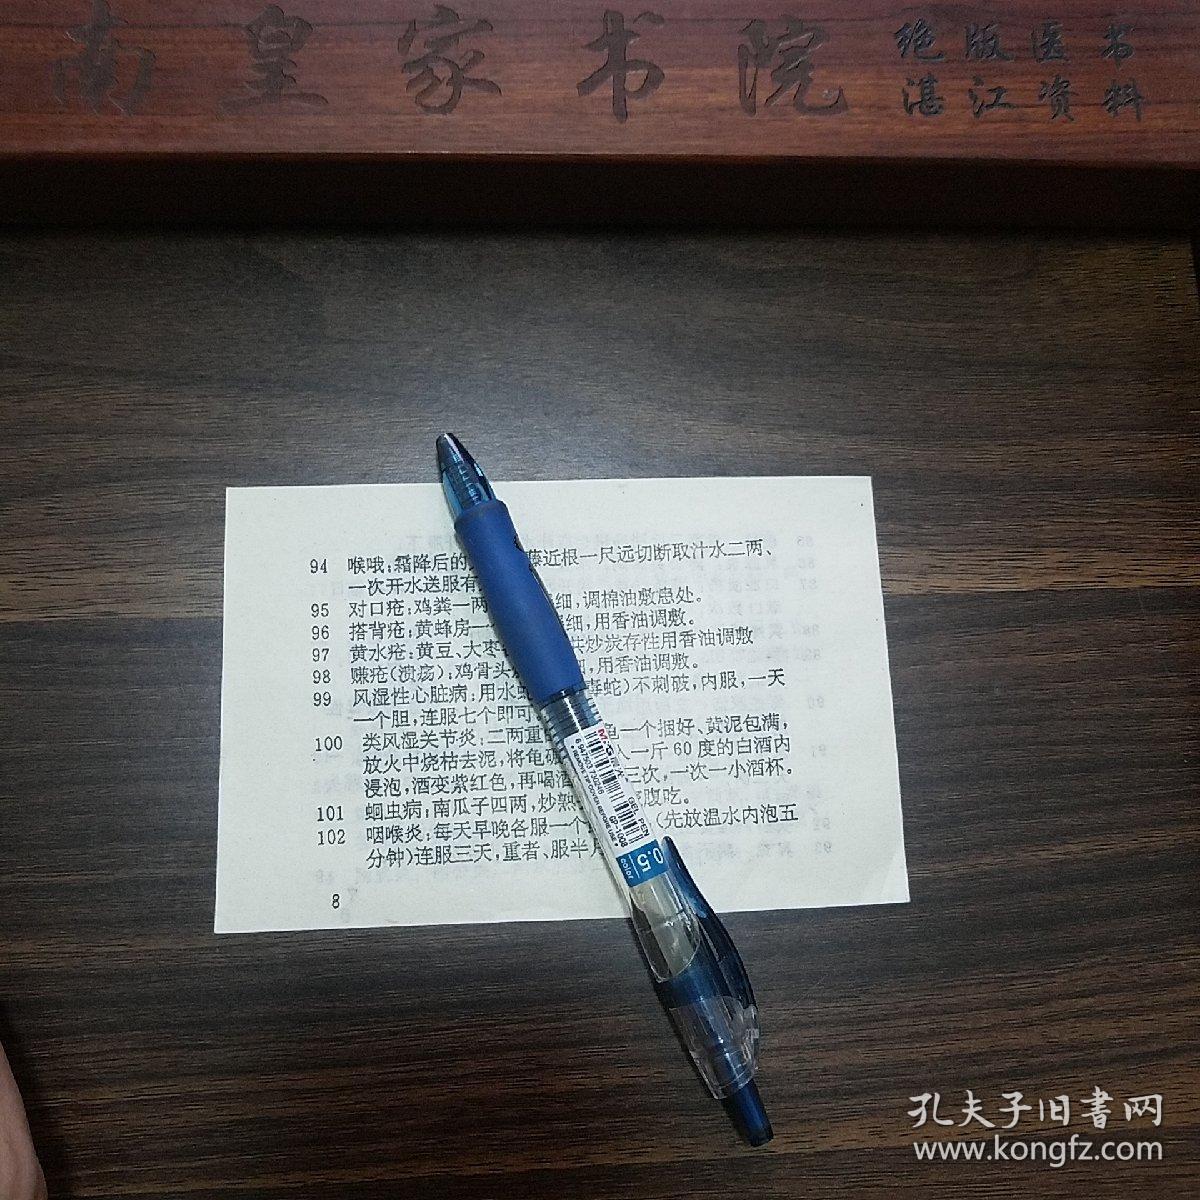 南皇家书院
绝版医书
湛江资料
94 喉哦;霜降后的 藤近根一尺远切断取汁水二两、
一次开水送服有
95 对口疮;鸡粪一两 细,调棉油敷患处。
96 搭背疮;黄蜂房一 细,用香油调敷。
97 黄水疮:黄豆、大枣 炒炭存性用香油调敷
98 臁疮(溃疡);鸡骨头 ,用香油调敷。
99 风湿性心脏病;用水蛇 毒蛇)不刺破,内服,一天
一个胆,连服七个即可
100 类风湿关节炎;二两重 一个捆好、黄泥包满,
放火中烧枯去泥,将龟砸 一斤60度的白酒内
浸泡,酒变紫红色,再喝酒 三次,一次一小酒杯。
101 蛔虫病;南瓜子四两,炒熟 腹吃。
102 咽喉炎;每天早晚各服一个 (先放温水内泡五
分钟)连服三天,重者、服半月
8
M&G
6 947503 730246
GEL PEN
GP-1008
0.5
孔夫子旧書网
www.kongfz.com